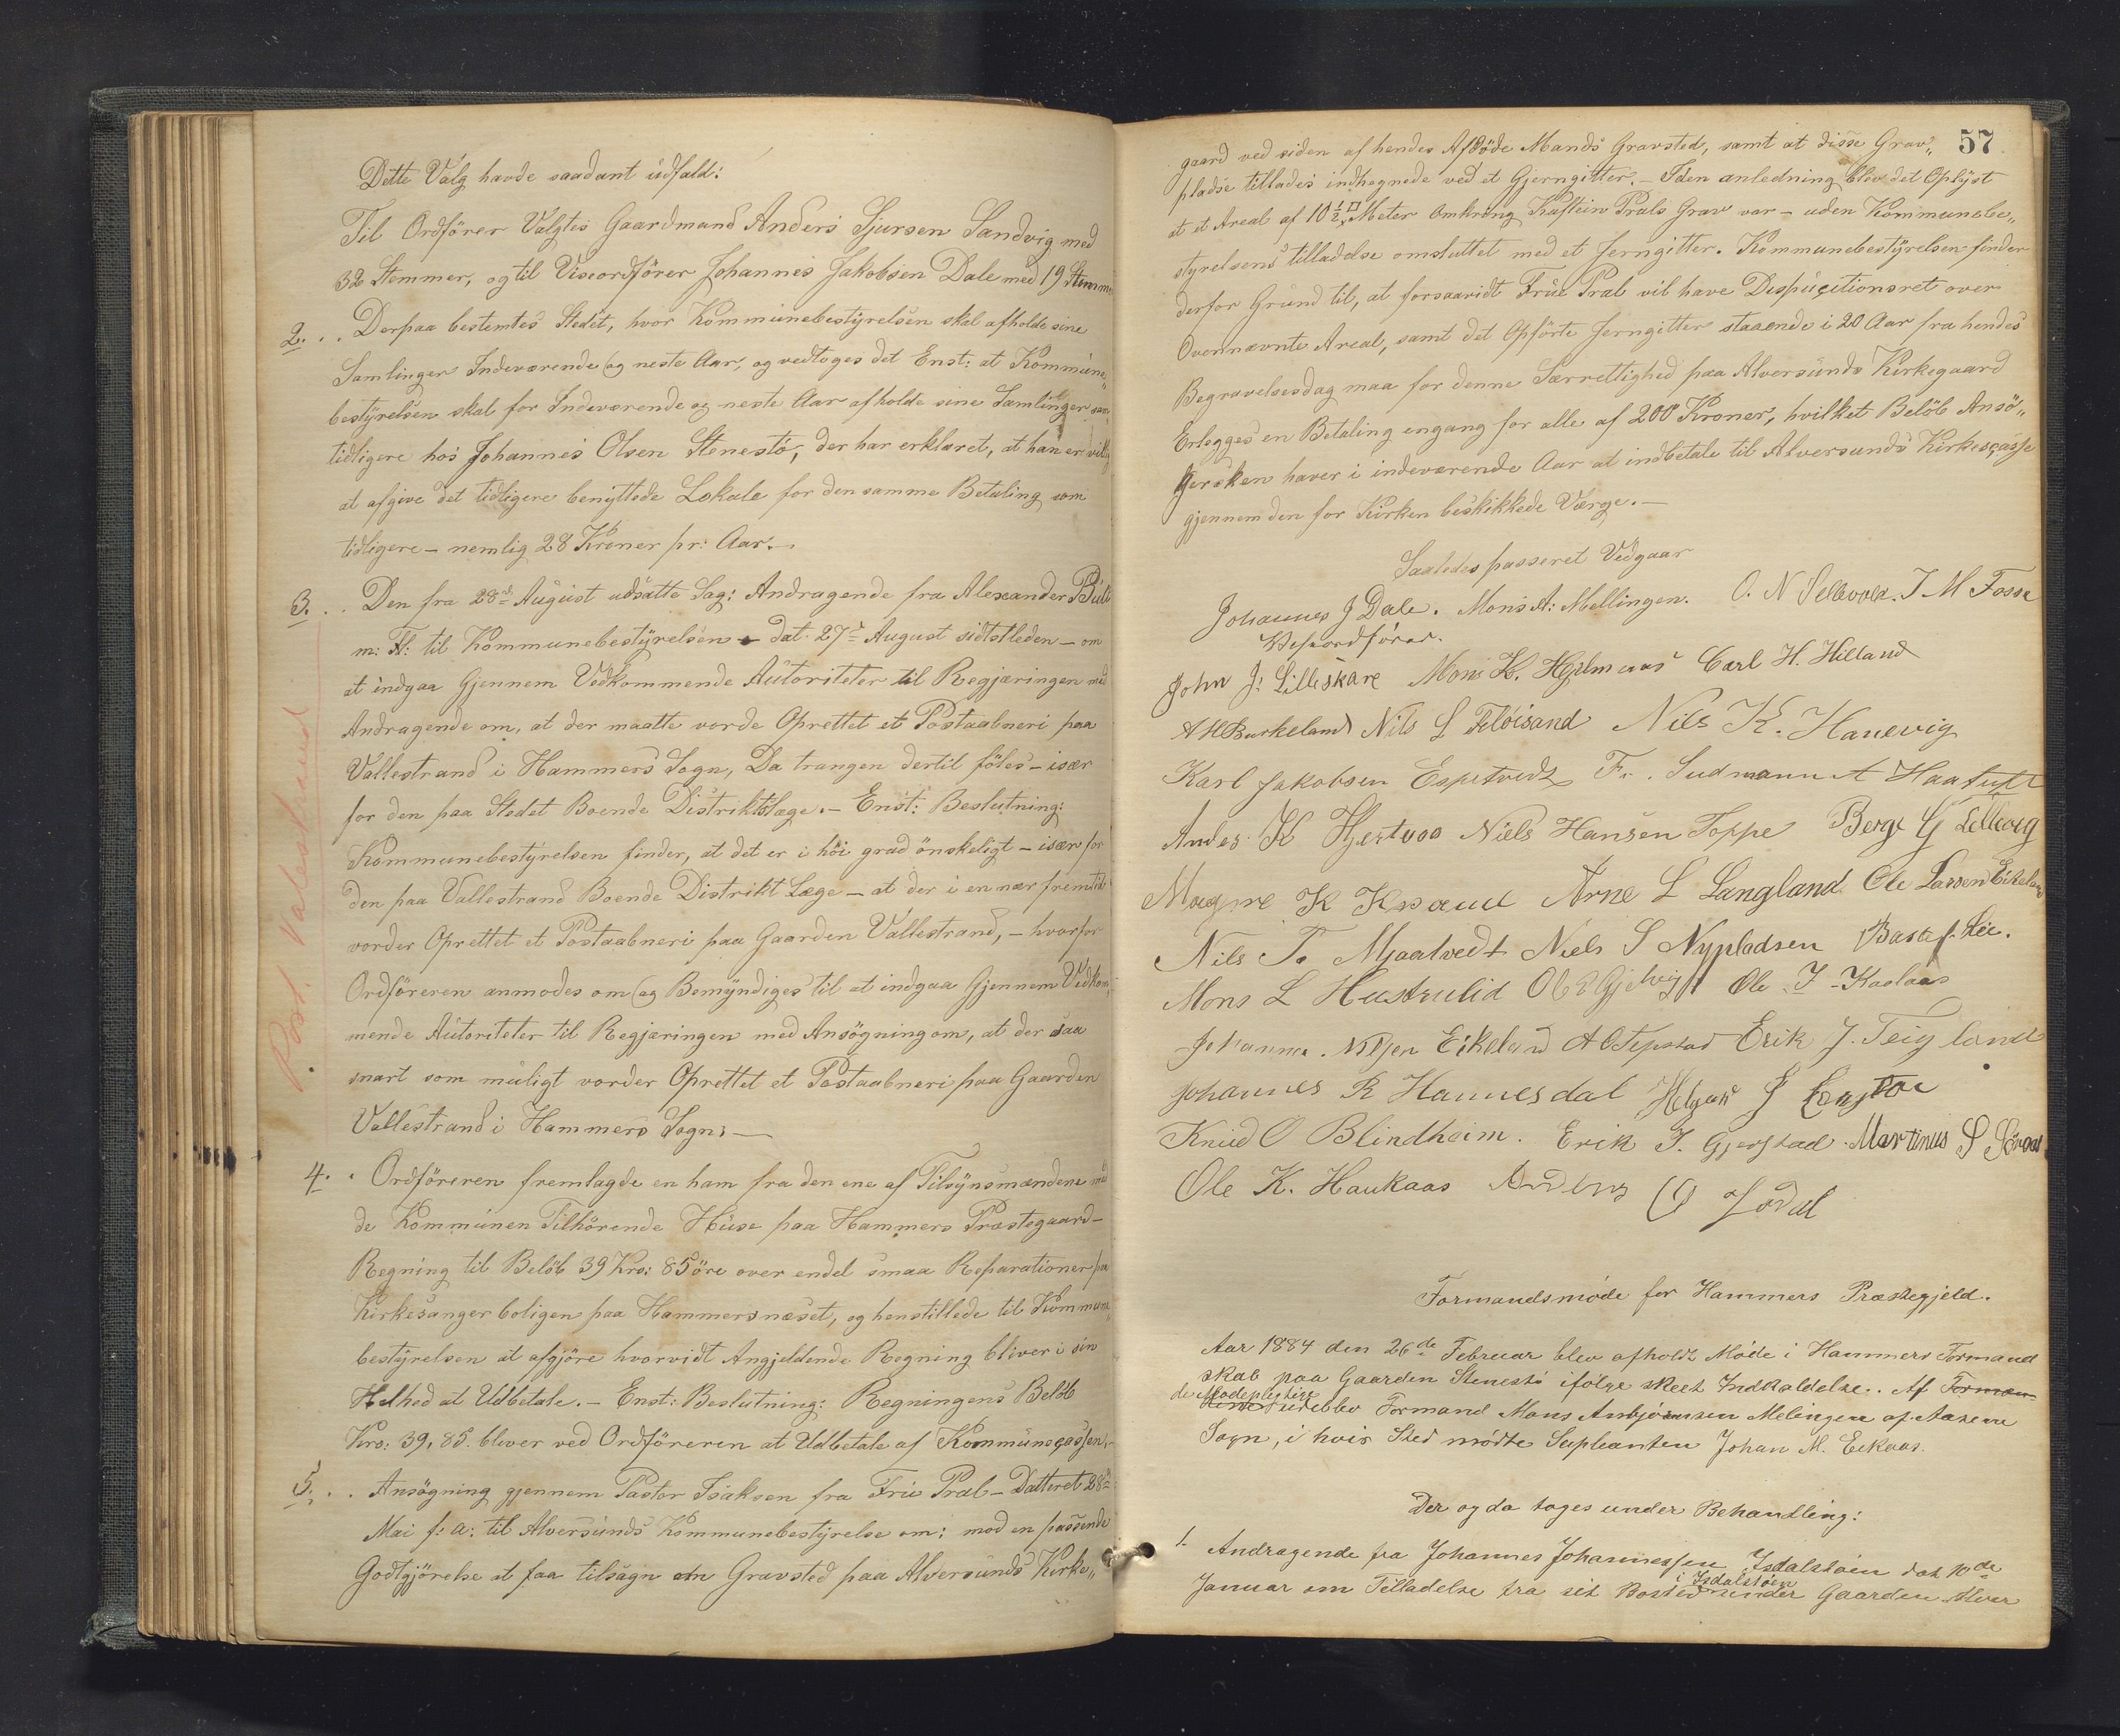 Dette Valg havde saadant udfald:
Til Ordförer Valgtes Gaardmand Anders Sjursen Sandvig med
32 Stemmer, og til Viseordförer Johannes Jakobsen Dale med 19 Stemmer
2. . . Derpaa bestemtes Stedet, hvor Kommunebestyrelsen skal afholde sine
Samlinger Indeværende og neste Aar, og vedtoges det Enst: at Kommune„
bestyrelsen skal for Indeværende og neste Aar afholde sine Samlinger som
tidligere hos Johannes Olsen Stenestö, der har erklæret, at han er villig
at afgive det tidligere benyttede Lokale for den samme Betaling som
tidligere – nemlig 28 Kroner pr: Aar. –
3. . . Den fra 28de August udsatte Sag: Andragende fra Alexander Bull
m: Fl: til Kommunebestyrelsen – dat. 27de August sidstleden – om
at indgaa Gjennem Vedkommende Autoriteter til Regjæringen med
Andragende om, at der maatte vorde Oprettet et Postaabneri paa
Vallestrand i Hammers Sogn, Da trangen dertil föles – især
for den paa Stedet Boende Distriktslæge. – Enst: Beslutning:
Kommunebestyrelsen finder, at det er i höi grad önskeligt – især for
den paa Vallestrand Boende Distrikt Læge – at der i en nær fremtid
vorder Oprettet et Postaabneri paa Gaarden Vallestrand, – hvorfor
Ordföreren anmodes om og Bemyndiges til at indgaa Gjennem Vedkom„
mende Autoriteter til Regjæringen med Ansögning om, at der saa
snart som muligt vorder Oprettet et Postaabneri paa Gaarden
Vallestrand i Hammers Sogn; –
Post. Valestrand
4. . Ordföreren fremlagde en ham fra den ene af Tilsynsmændene med
de Kommunen Tilhörende Huse paa Hammers Præstegaard –
Regning til Belöb 39 Kro: 85 öre over endel smaa Reparationer paa
Kirkesangerboligen paa Hammersnæset, og henstillede til Kommune„
bestyrelsen at afgjöre hvorvidt Angjeldende Regning bliver i sin
Helhed at Udbetale. – Enst: Beslutning: Regningens Belöb
Kro: 39,85. bliver ved Ordföreren at Udbetale af Kommuneçassen,
5. . . Ansögning gjennem Pastor Isaksen fra Frue Pral – Datteret 28de
Mai f: a: til Alversunds Kommunebestyrelse om; mod en passende
Godtgjörelse at faa tilsagn om Gravsted paa Alversunds Kirke„
57
gaard ved siden af hendes Afdöde Mands Gravsted, samt at disse Grav„
pladse tillades indhegnede ved et Gjerngitter. – Iden anledning blev det Oplyst
at et Areal af 10 1/2 □ Meter Omkring Kaftein Prals Grav var – uden Kommunebe„
styrelsens tilladelse omsluttet med et Jerngitter. Kommunebestyrelsen finder
derfor Grund til, at forsaavidt Frue Pral vil have Dispucitionsret over
Ovennævnte Areal, samt det Opförte Jerngitter staaende i 20 Aar fra hendes
Begravelsesdag maa for denne Særrettighed paa Alversunds Kirkegaard
Erlegges en Betaling engang for alle af 200 Kroner, hvilket Belöb Ansö„
gersken haver i indeværende Aar at indbetale til Alversunds Kirkesçasse
gjennem den for Kirken beskikkede Værge. –
Saaledes passeret Vedgaar
Johannes J Dale. Mons A: Mellingen. O. N Sellevold. J M Fosse
Viseordförer.
John J: Lilleskare Mons H. Hjelmaas Carl H. Hilland
A H Burkeland Nils L Flöisand Nils K. Hanevig
Karl Jakobsen Espetvedt Fr. Sudmann A Haatuft
Andes. K Hjertvos Niels Hansen Toppe Berge G Lellevig
Magne K Io Arne L Langland Ole Larsen Eikeland
Nils T. Mjaatvedt Niels S Nypladsen Lie.
Mons L Hustrulid Ole Gjelvig Ole I Kaslaas
Johannes. Nilsen Eikeland A O Tepstad Erik J. Teigland
Johannes R Hannesdal Helge J
Knud O Blindheim. Erik J. Gjerstad. Martinus S
Ole K. Haukaas Anders O
Formandsmöde for Hammers Præstegjeld.
Aar 1884 den 26de Februar blev afholdt Möde i Hammers Formand
skab paa Gaarden Stenestö ifölge skeet Indkaldelse.. Af Formæn
de Mödepligtige
dene udeblev Formand Mons Anbjörnsen Melingen af Aasene
Sogn, i hvis Sted mödte Supleanten Johan M. Eekaas.
Der og da toges under Behandling:
1. Andragende fra Johannes Johannessen Isdalstöen dat 10de
i Isdalstöen
Januar om Tilladelse fra sit Bosted under Gaarden Alver